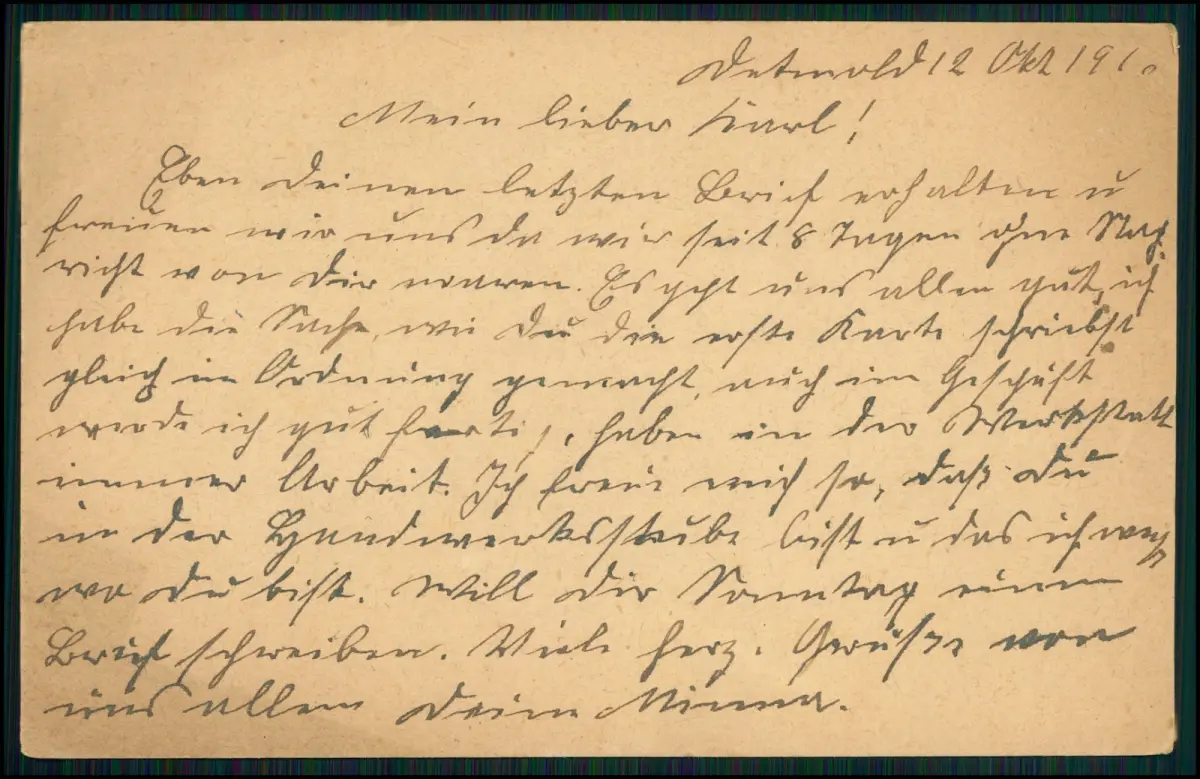 Detmold 12 Okt 191
Mein lieber Karl!
Eben deinen letzten Brief erhalten u
freuen wir uns da wir seit 8 Tagen ohne Nach
richt von dir waren. Es geht uns allen gut, ich
habe die Sache, wie du die erste Karte schriebst
gleich in Ordnung gemacht, auch im Geschäft
werde ich gut fertig, haben in der Werkstatt
immer Arbeit. Ich freue mich so, daß du
in der Handwerksstube bist u das ich weiß
wo du bist. Will dir Sonntag einen
Brief schreiben. Viele herz. Grüße von
uns allen deine Minna.